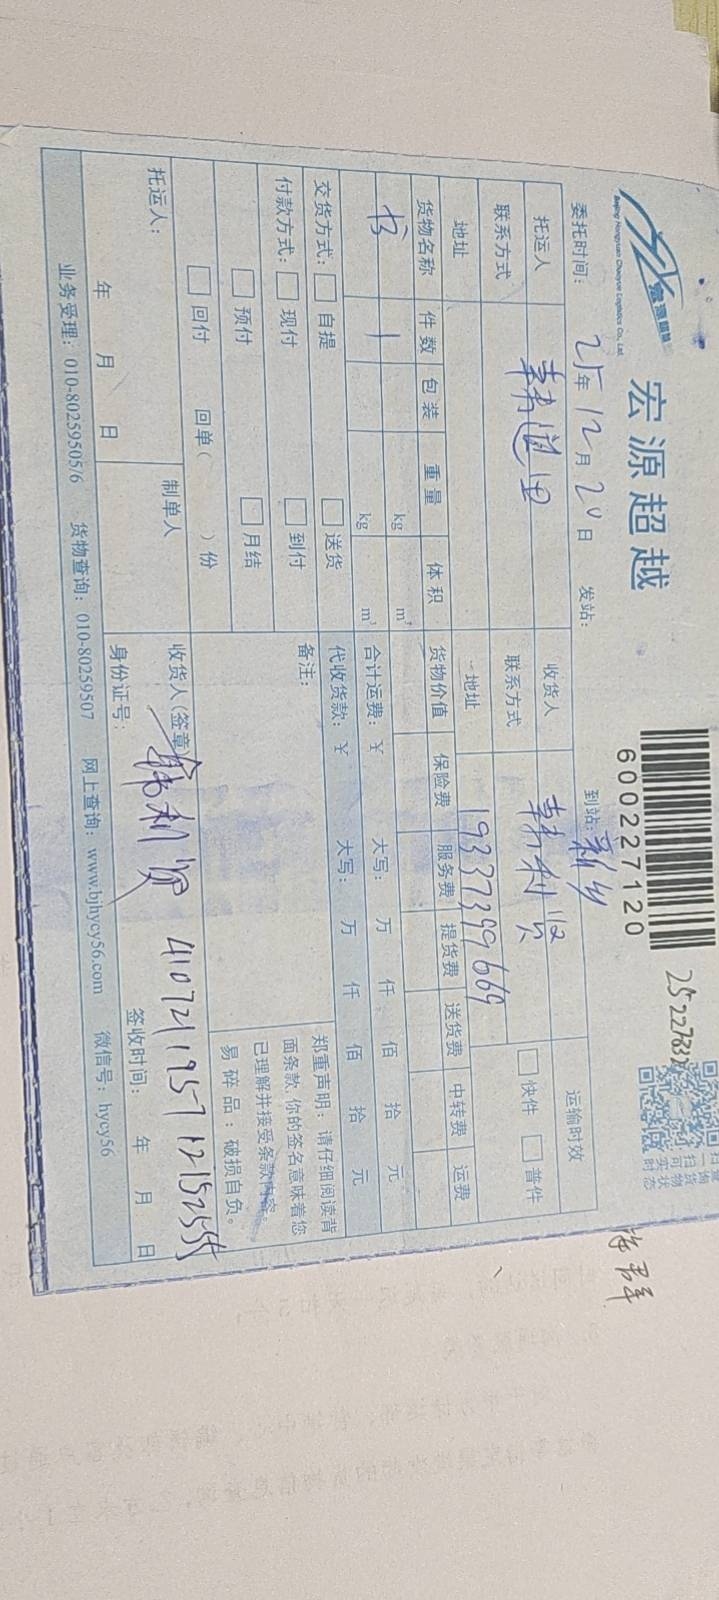 宏源超越
Beijing Hongyuan Chaoyue Logistics Co., Ltd.
宏源超越
600227120
委托时间: 25年12月20日 发站: 到站: 新乡
托运人 韩道田 收货人 韩利贤 运输时效
联系方式 联系方式 19337399669 快件 普件
地址 地址
货物名称 件数 包装 重量 体积 货物价值 保险费 服务费 提货费 送货费 中转费 运费
书 1 kg m³
kg m³ 合计运费: ¥ 大写: 万 仟 佰 拾 元
交货方式: 自提 送货 代收货款: ¥ 大写: 万 仟 佰 拾 元
付款方式: 现付 到付 备注:
预付 月结
回付 回单( )份
郑重声明: 请仔细阅读背
面条款, 你的签名意味着您
已理解并接受条款内容。
易碎品: 破损自负。
托运人: 制单人 收货人(签章) 韩利贤 410721195712152555
年 月 日 身份证号: 签收时间: 年 月 日
业务受理: 010-80259505/6 货物查询: 010-80259507 网上查询: www.bjhycy56.com 微信号: hycy56